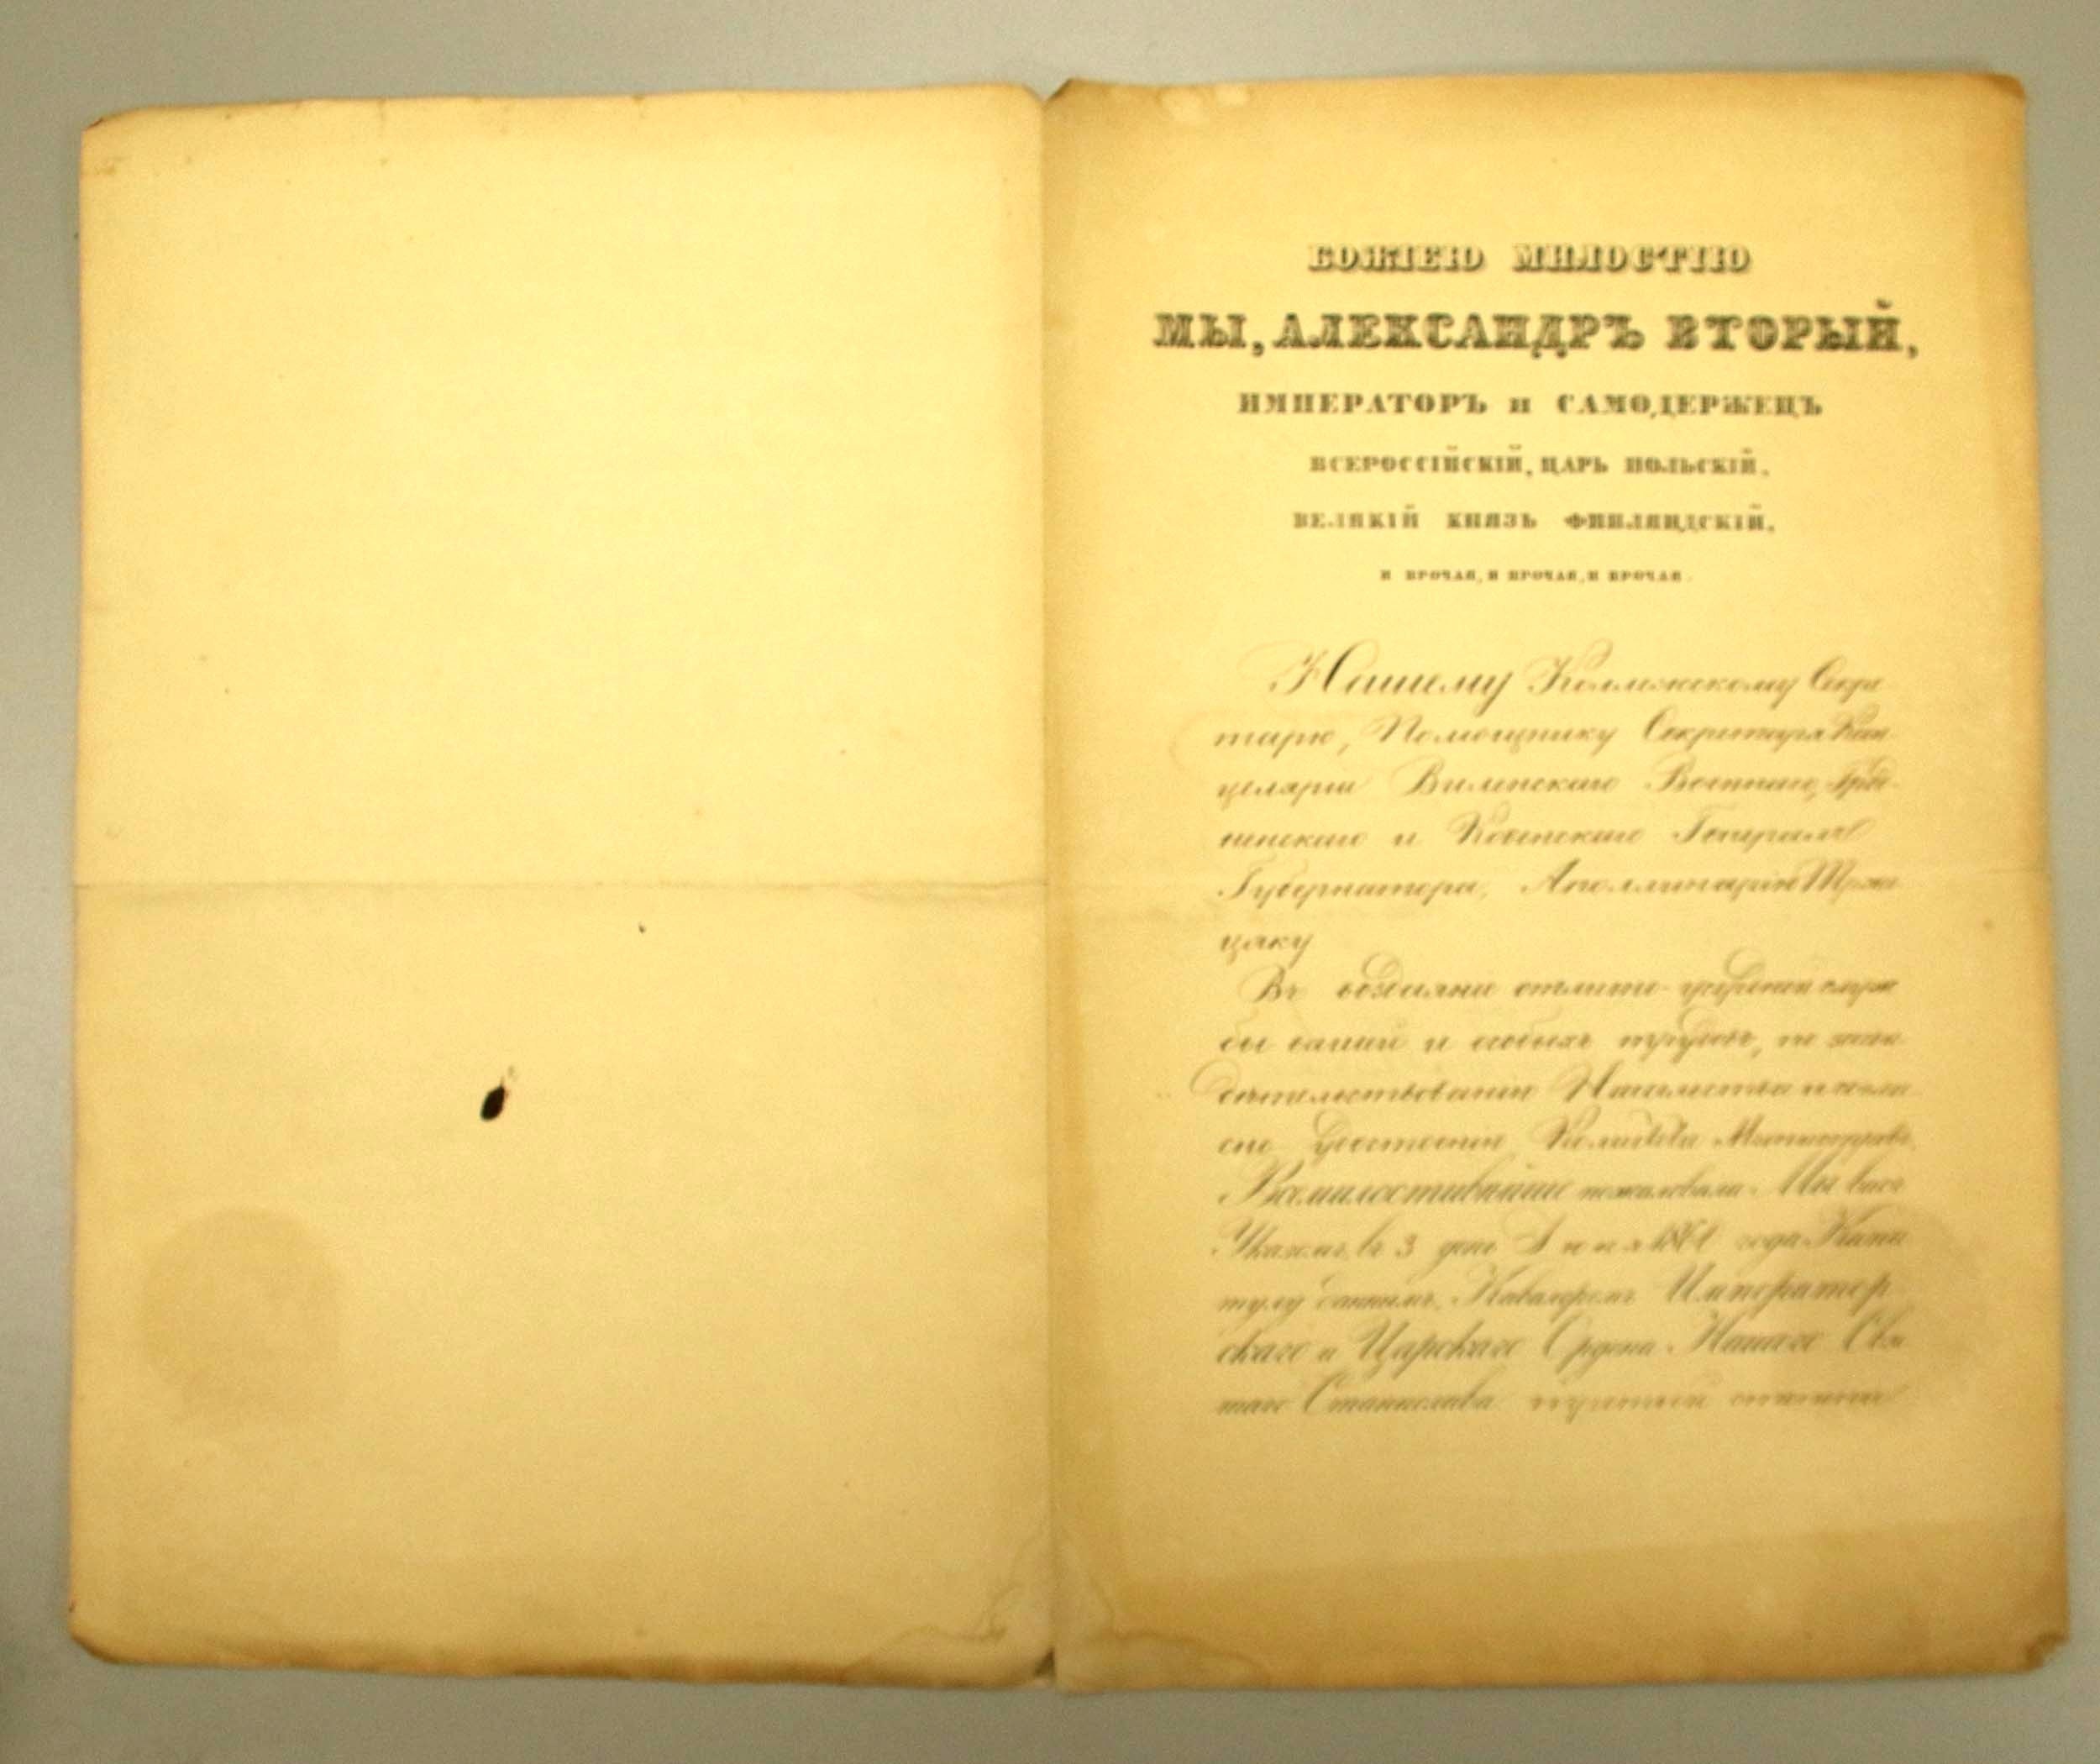 БОЖІЕЮ МИЛОСТІЮ
МЫ, АЛЕКСАНДРЪ ВТОРЫЙ,
ИМПЕРАТОРЪ и САМОДЕРЖЕЦЪ
ВСЕРОССІЙСКІЙ, ЦАРЬ ПОЛЬСКІЙ,
ВЕЛИКІЙ КНЯЗЬ ФИНЛЯНДСКІЙ,
И ПРОЧАЯ, И ПРОЧАЯ, И ПРОЧАЯ.
Нашему Коллежскому Секре-
тарю, Помощнику Секретаря Кан-
целяріи Виленскаго Военнаго, Грод-
ненскаго и Ковенскаго Генералъ
Губернатора, Аполлинарію
цяку
Въ воздаяніе отлично-усердной служ
бы вашей и особыхъ трудовъ, по засви
дѣтельствованію Начальства и согла
сно удостоенію Комитета Министровъ,
Всемилостивѣйше пожаловали Мы васъ
Указомъ, въ 3 день 1861 года Капи
тулу даннымъ, Кавалеромъ Император
скаго и Царскаго Ордена Нашего Свя
таго Станислава третьей степени